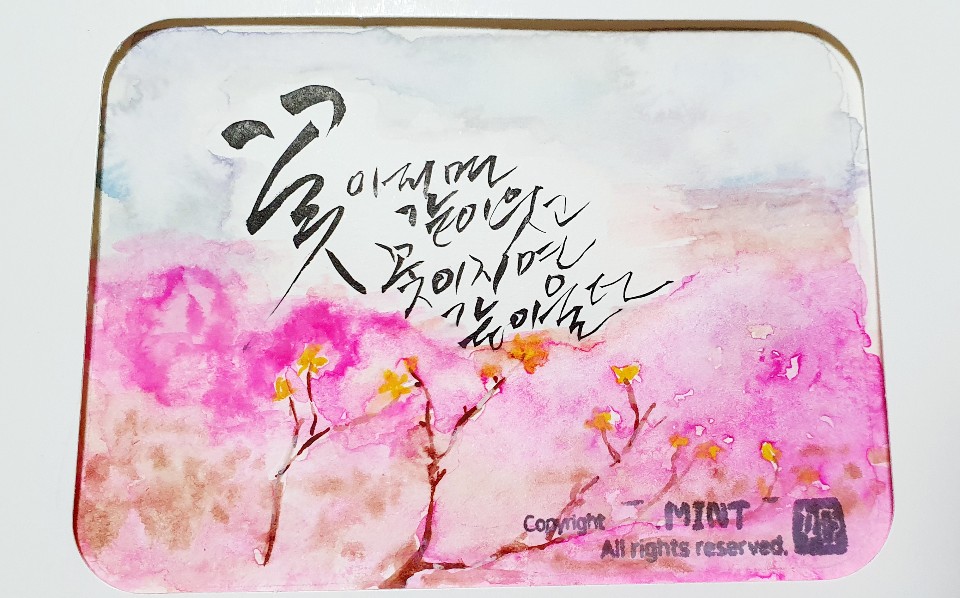 꽃이 피면
같이 웃고
꽃이 지면
같이 울던
Copyright MINT
All rights reserved.